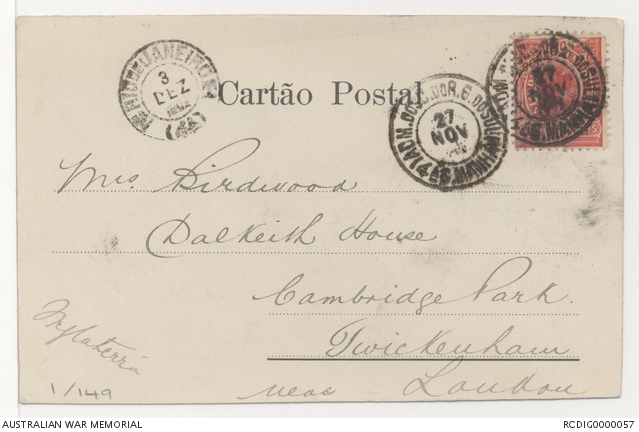 RIO DE JANEIRO
3
DEZ
Cartão Postal
27
NOV
27
Mrs Birdwood
Dalkeith House
Cambridge Park.
Twickenham
near London
Inglaterra
1/149
AUSTRALIAN WAR MEMORIAL
RCDIG0000057